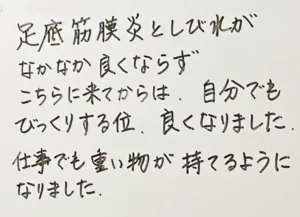 足底筋膜炎としびれが
なかなか良くならず
こちらに来てからは、自分でも
びっくりする位、良くなりました.
仕事でも重い物が持てるように
なりました.